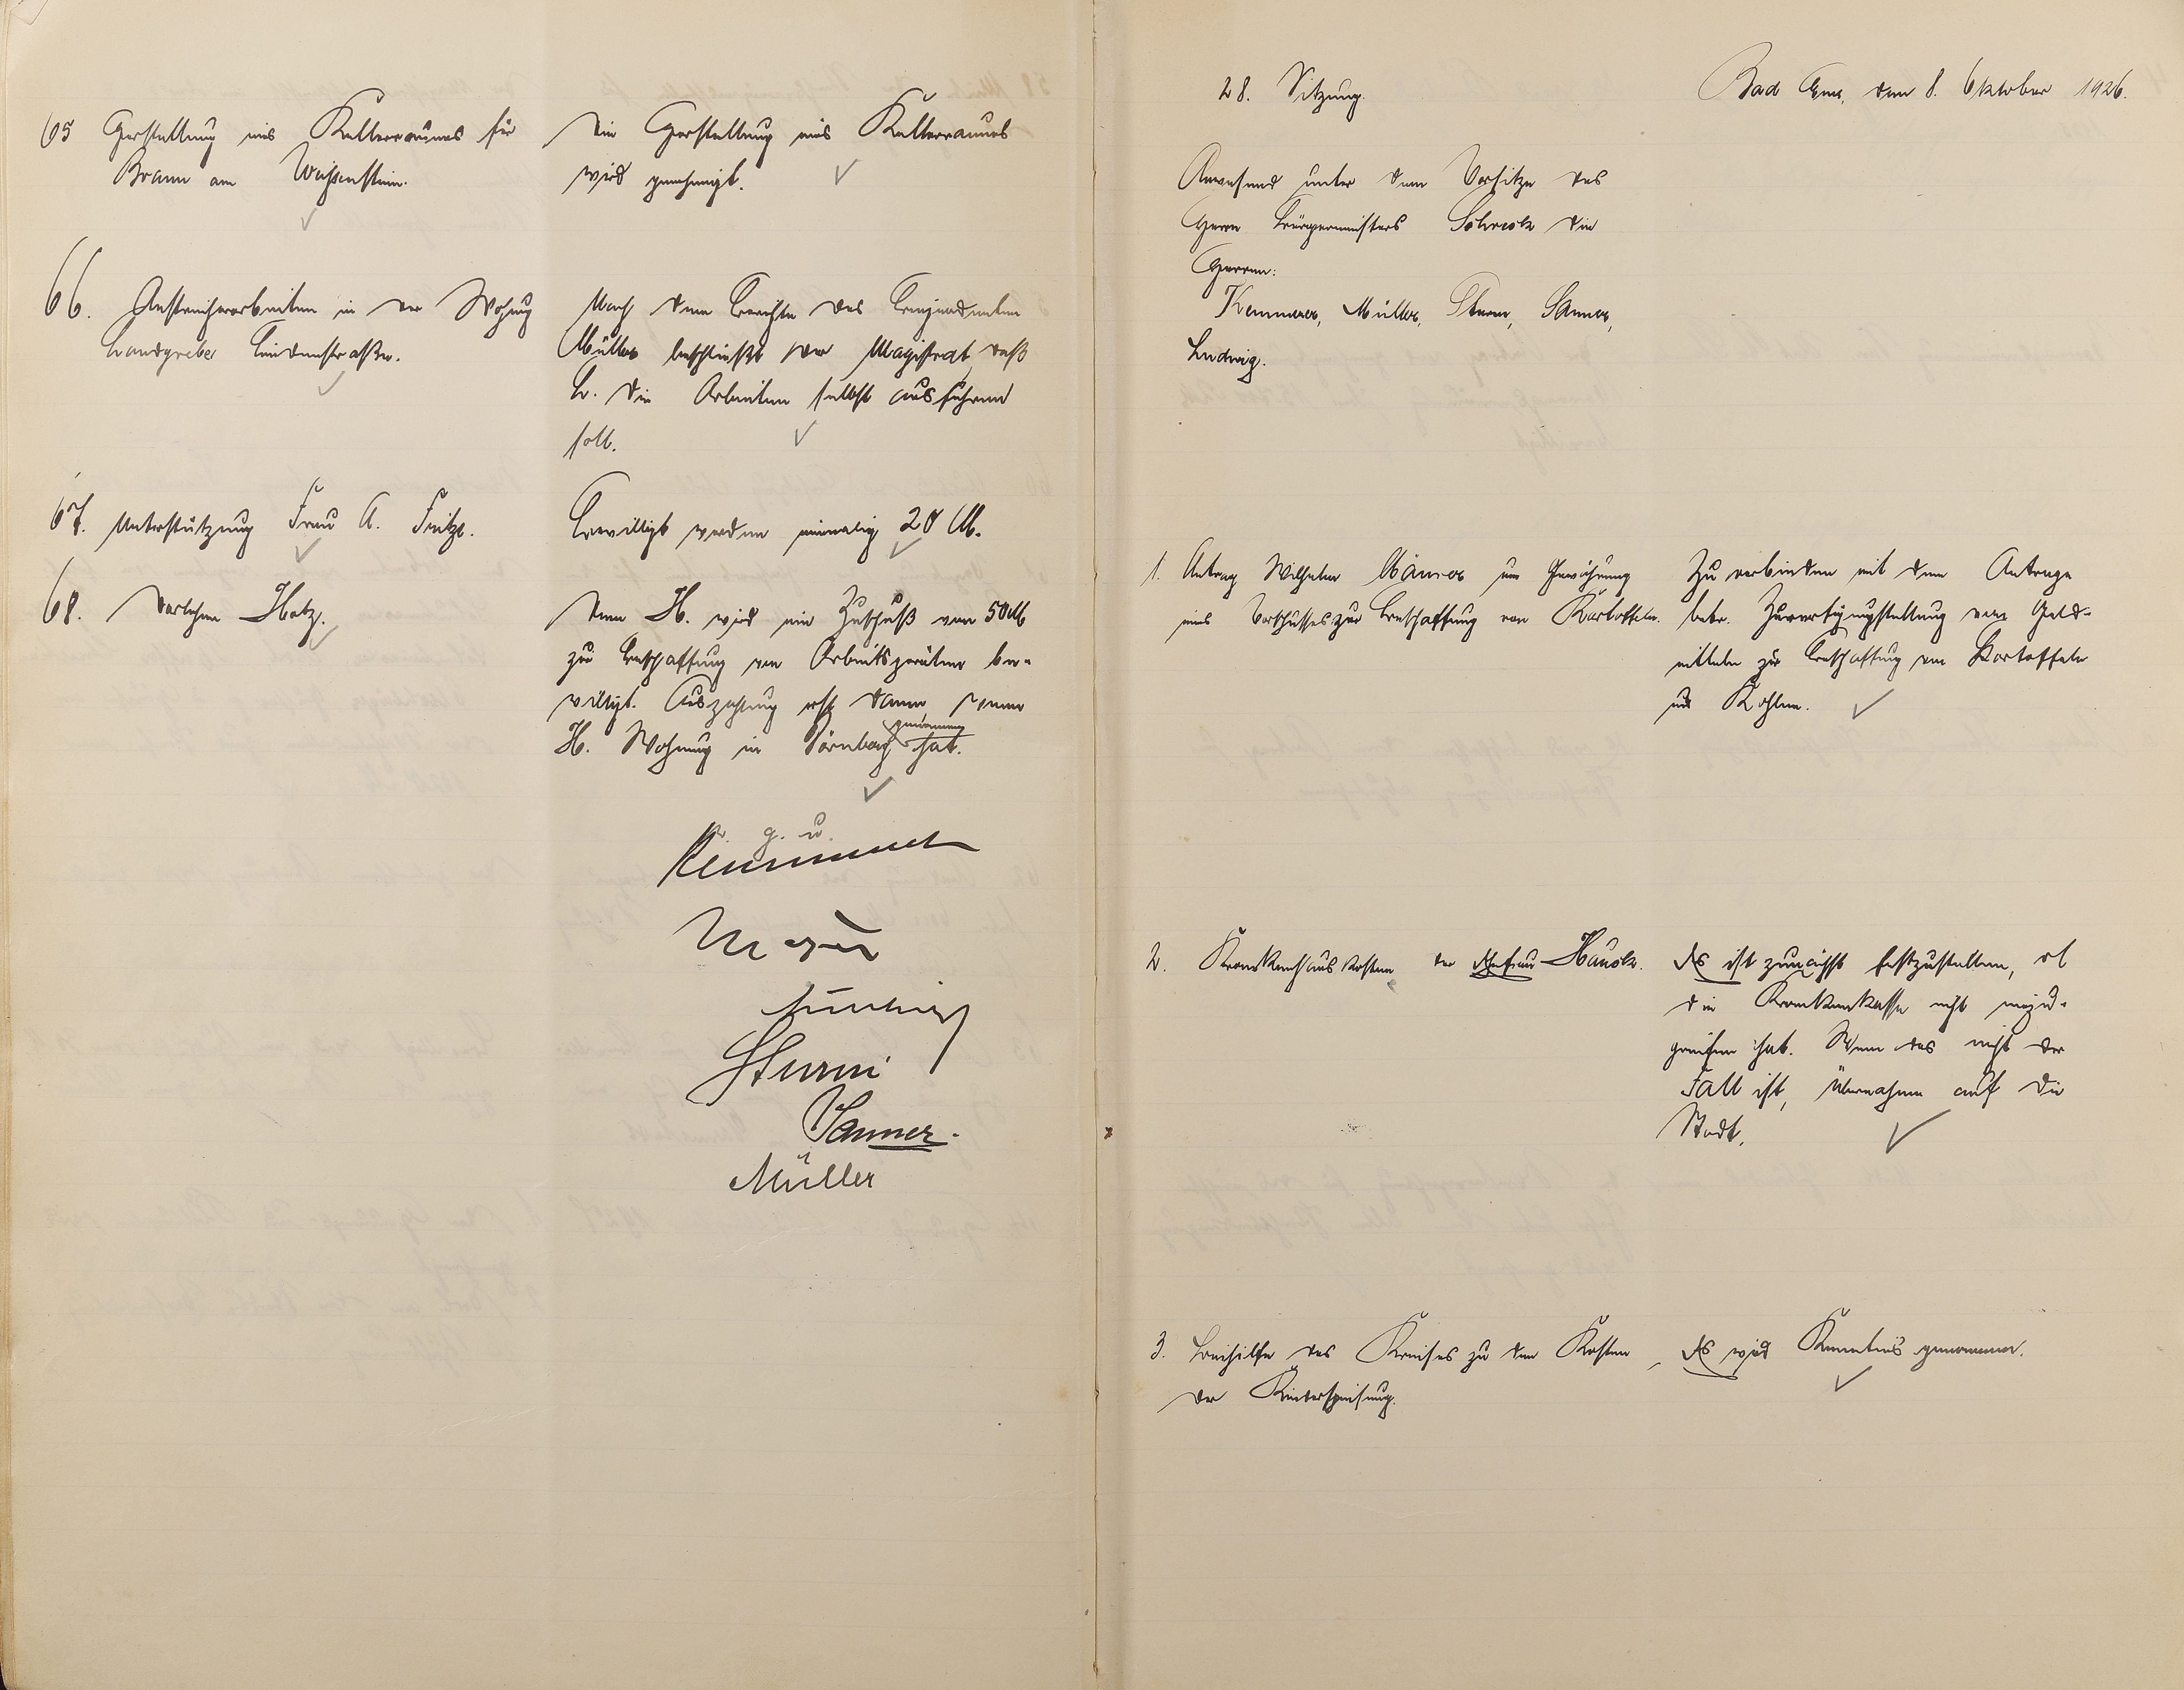 65 Herstellung eines Kellerraumes für
Braun am Weissenstein.
Die Herstellung eines Kellerraumes
wird genehmigt.
66. Anstreicherarbeiten in der Wohnung
Landgrebe Lindenstraße.
Nach dem Berichte des Beigeordneten
Müller beschließt der Magistrat, daß
L. die Arbeiten selbst ausführen
soll.
67. Unterstützung Frau A. Seitz.
Bewilligt werden einmalig 20 M.
68. Darlehen Hotz.
Dem H. wird ein Zuschuß von 50 M
zur Beschaffung von Arbeitsgeräten be-
willigt. Auszahlung erst dann, wenn
H. Wohnung in Dörnberg genommen hat.
g. u.
Kemmerer
Meyer
Ludwig
Sturm
Sanner.
Müller
28. Sitzung.
Bad Ems, den 8. Oktober 1926.
Anwesend unter dem Vorsitze des
Herrn Bürgermeisters Schreck die
Herren:
Kemmerer, Müller, Sturm, Sanner,
Ludwig.
1. Antrag Wilhelm Maurer um Gewährung
eines Vorschusses zur Beschaffung von Kartoffeln.
Zu verbinden mit dem Antrage
betr. Zurverfügungstellung von Geld-
mitteln zur Beschaffung von Kartoffeln
und Kohlen.
2. Krankenhauskosten der Ehefrau Hauck.
Es ist zunächst festzustellen, ob
die Krankenkasse nicht einzu-
greifen hat. Wenn das nicht der
Fall ist, Übernahme auf die
Stadt.
3. Beihilfe des Kreises zu den Kosten
der Kinderspeisung.
Es wird Kenntnis genommen.